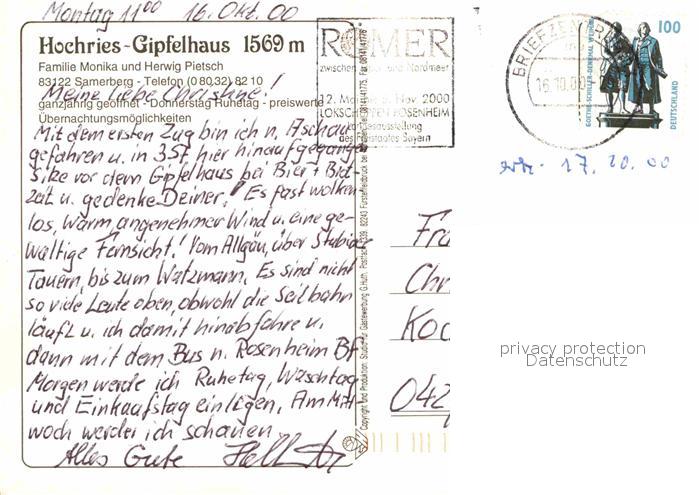 Montag 11⁰⁰ 16. Okt. 00
Hochries-Gipfelhaus 1569 m
Familie Monika und Herwig Pietsch
83122 Samerberg - Telefon (0 80 32) 82 10
Meine liebe Christine!
ganzjährig geöffnet - Donnerstag Ruhetag - preiswerte
Übernachtungsmöglichkeiten
Mit dem ersten Zug bin ich n. Aschau
gefahren u. in 3 St hier hinaufgegangen
Sitze vor dem Gipfelhaus bei Bier + Brot-
zeit u. gedenke Deiner! Es fast wolken
los, warm, angenehmer Wind u. eine ge-
waltige Fernsicht! Vom Allgäu, über Stubaier
Tauern, bis zum Watzmann. Es sind nicht
so viele Leute oben, obwohl die Seilbahn
läuft u. ich damit hinabfahre u.
dann mit dem Bus n. Rosenheim Bf
Morgen werde ich Ruhetag, Waschtag
und Einkaufstag einlegen. Am Mitt-
woch werde ich schauen.
Alles Gute
RÖMER
zwischen Alpen und Nordmeer
12. Mai - 5. Nov. 2000
LOKSCHUPPEN ROSENHEIM
Landesausstellung
des Freistaates Bayern
BRIEFZENTRUM
16.10.00
100
GOETHE-SCHILLER-DENKMAL WEIMAR
DEUTSCHLAND
17. 10. 00
Fra
Chr
Koc
042
privacy protection
Datenschutz